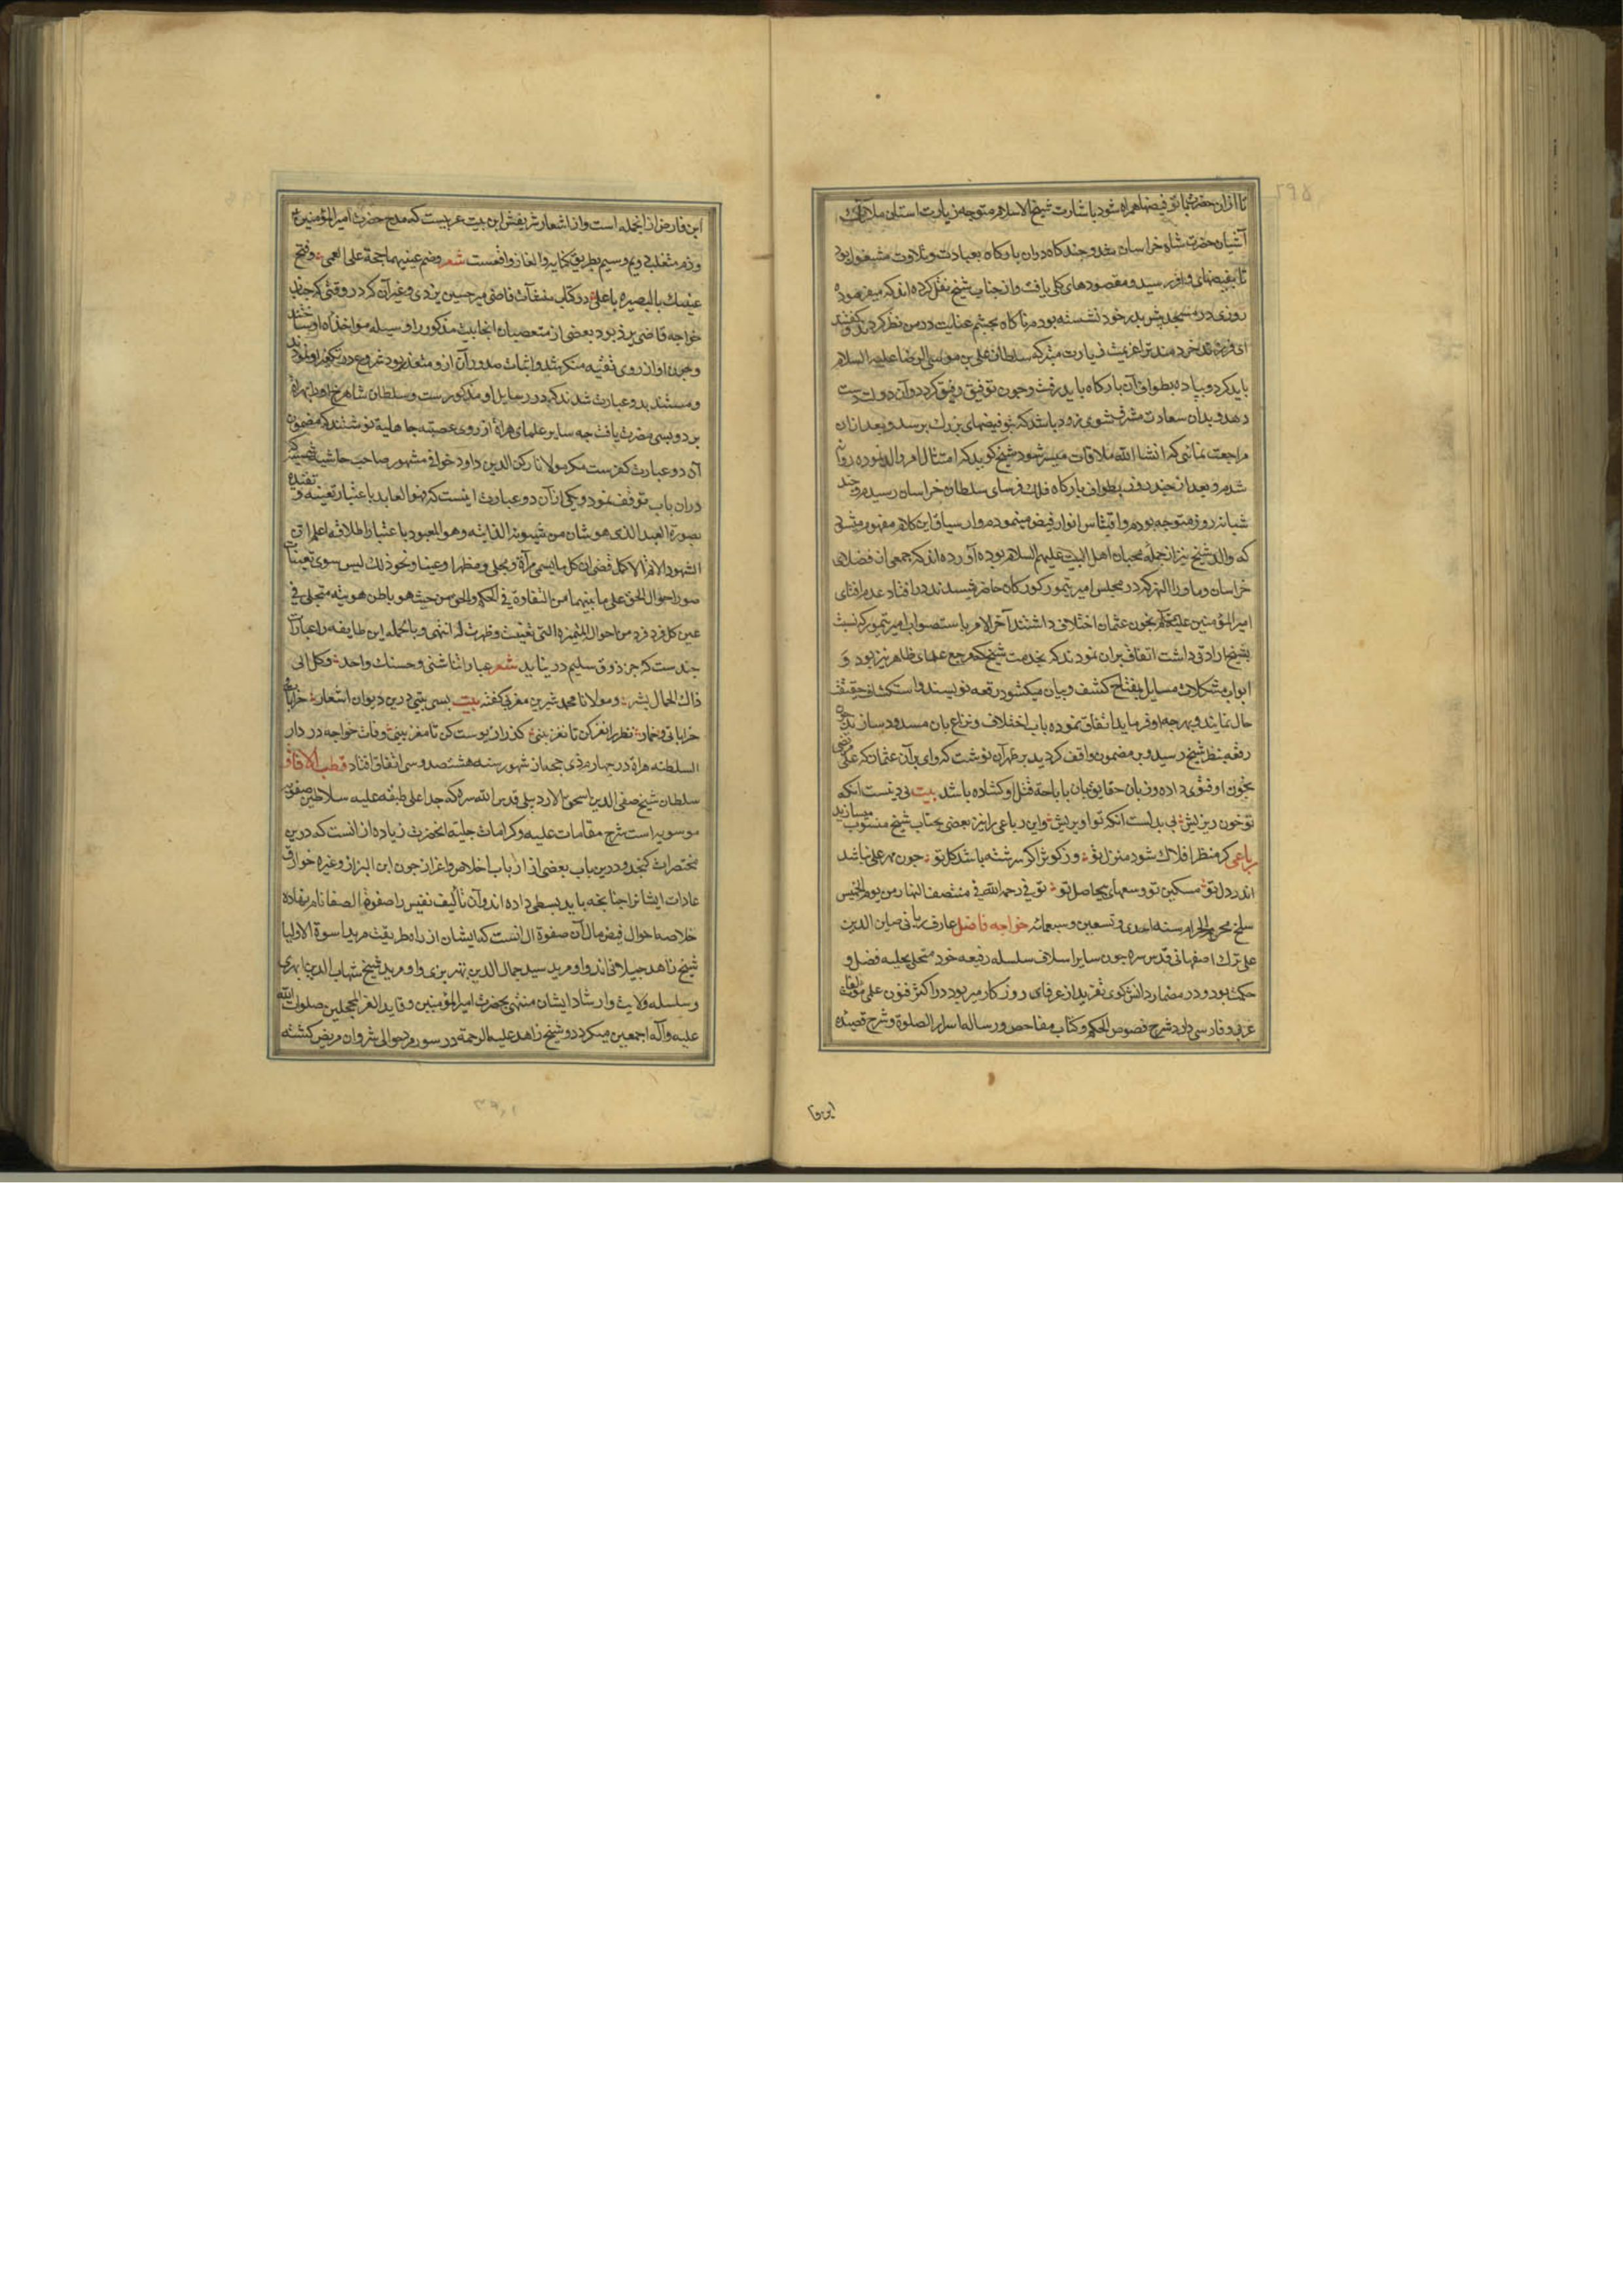 تا ازان حضرت بتو فیضها همراه شود باشارت شیخ الاسلام متوجه زیارت استان ملایک
آشیان حضرت شاه خراسان شد و چند کاه دران بارکاه بعبادت و تلاوت مشغول بود
تا بفیضهای وافر رسید و مقصودهای کلی یافت و از جناب شیخ نقل کرده اند که میفرمود
روزی در مسجد پیش پدر خود نشسته بودم ناکاه بچشم عنایت در من نظر کردند و کفتند
ای فرزند خردمند ترا عزیمت زیارت متبرکه سلطان علی بن موسی الرضا علیه السلام
باید کرد و پیاده بطواف آن بارکاه باید رفت و چون توفیق رفیق کردد و آن دولت دست
دهد و بدان سعادت مشرف شوی زود باشد که بتو فیضهای بزرک برسد و بعد ازان
مراجعت نمائی که انشا الله ملاقات میسر شود شیخ کوید که امتثال امر والد نموده روان
شدم و بعد از چند روز بطواف بارکاه فلک فرسای سلطان خراسان رسیدم و چند
شبانه روز متوجه بودم و اقتباس انوار فیض مینمودم و از سیاق این کلام مفهوم میشود
که والد شیخ نیز از جمله محبان اهل البیت علیهم السلام بوده آورده اند که جمعی از فضلای
خراسان و ماورا النهر که در مجلس امیر تیمور کورکان حاضر میشدند در افتا و عدم افتای
امیرالمؤمنین علی بخون عثمان اختلاف داشتند آخر الامر باستصواب امیر تیمور که نسبت
بشیخ ارادتی داشت اتفاق بران نمودند که بخدمت شیخ که مرجع علمای ظاهر نیز بود و
ابواب مشکلات مسایل بمفتاح کشف و بیان میکشود رقعه نویسند و استکشاف حقیقت
حال نمایند و بهرچه او فرماید اتفاق نموده باب اختلاف و نزاع بان مسدود سازند چون
رقعه بنظر شیخ رسید و بر مضمون واقف کردید بر ظهر آن نوشت که وای بر آن عثمان که علی مرتضی
بخون او فتوی داده و زبان حقایق بیان باباحة قتل او کشاده باشد بیت بی دینست انکه
تو خون ریزیش بی بدلست انکه تو اویریش و این رباعی را نیز بعضی بجناب شیخ منسوب میسازند
رباعی کر منظر افلاک شود منزل تو وز کوثر اکر سرشته باشد کل تو چون مهر علی نباشد
اندر دل تو مسکین تو و سعیهای بیحاصل تو توفی رحمه الله فی منتصف النهار من یوم الخمیس
سلخ محرم الحرام سنه احدی و تسعین و سبعمائه خواجه فاضل عارف ربانی صاین الدین
علی ترک اصفهانی قدس سره چون سایر اسلاف سلسله رفیعه خود متحلی بحلیه فضل و
حکمت بود و در مضمار دانش کوی تفرید از عرفای روزکار میربود در اکثر فنون علمی مؤلفات
عربی و فارسی دارد شرح فصوص الحکم و کتاب مفاحص و رساله اسرار الصلوة و شرح قصیده
ابن فارض از انجمله است و از اشعار شریفش این بیت عربیست که مدح حضرت امیرالمؤمنین
و ذم متغلبی و بطریق کنایه و الغاز واقعست شعر وضم عینیهما حجة علی العمی وفتح
عینیک بالبصیره یا علی در کتاب منشآت قاضی میر حسین یزدی و غیر آن کرد در وقتی که جناب
خواجه قاضی یزد بود بعضی از متعصبان انجا بیت مذکور را وسیله مؤاخذه او ساختند
و چون او از روی تقیه منکر شد و اثبات صدور آن ازو متعذر بود شروع در تکفیر او نمودند
و مستند بدو عبارت شدند که در رسایل او مذکور ست و سلطان شاهرخ او را بهراة
برد و بسی مضرت یافت چه سایر علمای هراة از روی عصبیه جاهلیة نوشتند که مضمون
آن دو عبارت کفرست مکر مولانا رکن الدین داود خوافی مشهور صاحب حاشیه شمسیه که
دران باب توقف نمود و یکی از آن دو عبارت اینست که هو العابد باعتبار تعینه و تقیده
بصورة العبد الذی هو شان من شیونه الذاتیه وهو المعبود باعتبار اطلاقه اعلم ان
الشهود الاتم الاکمل قضی ان کل ما یسمی مرآة ومجلی ومظهرا وعینا ونحو ذلک لیس سوی تعینات
صور احوال الحق علی ما بینهما من التفاوة فی الحکم والحق من حیث هو باطن هویته متجلی فی
عین کل فرد فرد من احواله المتمیزه التی تعینت وظهرت له انتهی و بالجمله این طایفه را عبارات
چندست که جز ذوق سلیم در نیابد شعر عباراتنا شتی وحسنک واحد وکل الی
ذاک الجمال یشیر و مولانا محمد شیرین مغربی کفته بیت بسی بینی درین دیوان اشعار خرابات
خراباتی و خمار نظر را نغز کن تا نغز بینی کذر از پوست کن تا مغز بینی وفات خواجه در دار
السلطنه هراة در چهاردهم ذی حجه از شهور سنه هشتصد و سی اتفاق افتاد قطب الآفاق
سلطان شیخ صفی الدین اسحق الاردبیلی قدس الله سره که جد اعلی طبقه علیه سلاطین صفویه
موسویه است شرح مقامات علیه و کرامات جلیه انحضرت زیاده از انست که درین
مختصرات کنجد و درین باب بعضی از ارباب اخلاص و اعزاز چون ابن البزاز و غیره خوارق
عادات ایشانرا چنانچه باید بسطی داده اند و آن تألیف نفیس را صفوة الصفا نام نهاده
خلاصه احوال فیض مآل آن صفوة ال انست که ایشان از راه طریقت مرید اسوة الاولیا
شیخ زاهد جیلانی اند و او مرید سید جمال الدین تبریزی و او مرید شیخ شهاب الدین اهری
و سلسله ولایت و ارشاد ایشان منتهی بحضرت امیرالمؤمنین و قاید الغر المحجلین صلوات الله
علیه و آله اجمعین میکردد و شیخ زاهد علیه الرحمة در سورمرد حوالی شروان مریض کشته